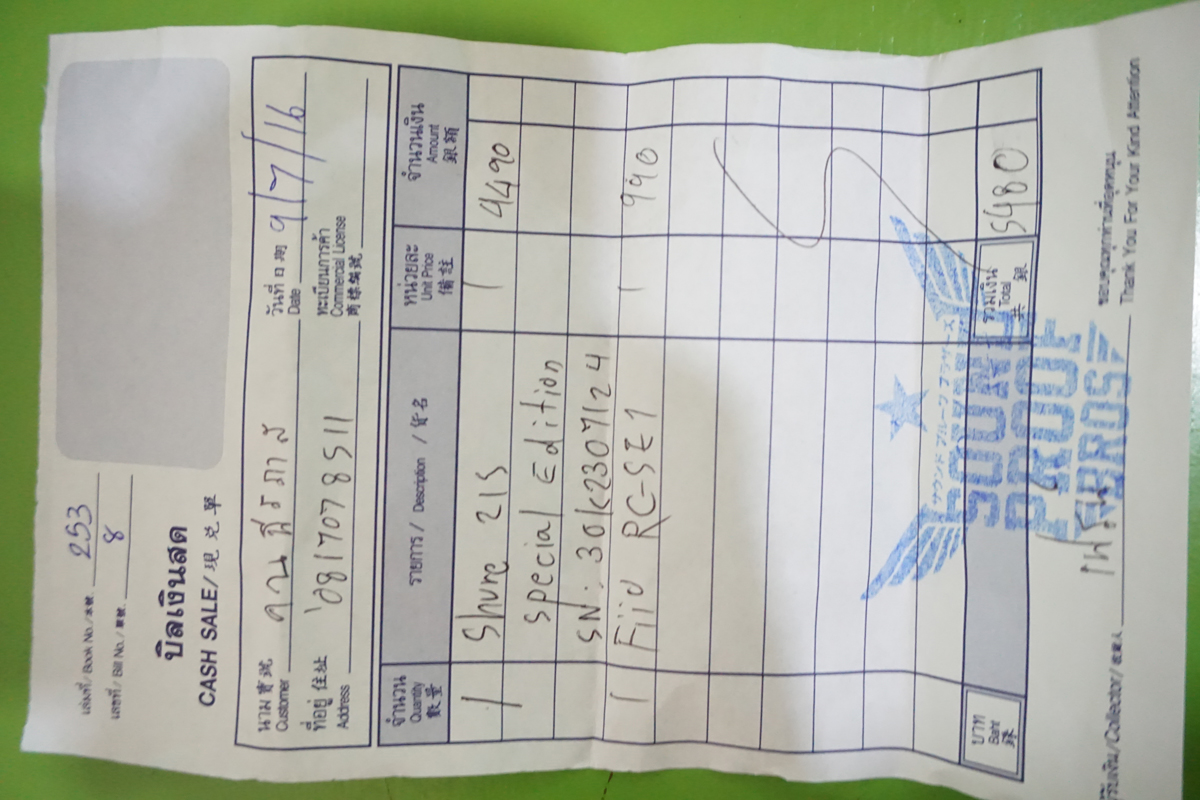 เล่มที่/ Book No./本號. 253
เลขที่/ Bill No./單號. 8
บิลเงินสด
CASH SALE/現兌單
นามลูกค้า 寶號 Customer
วันที่ 日期 Date 9/7/16
ที่อยู่ 住址 Address 0817078511
ทะเบียนการค้า Commercial License 商標編號
จำนวน Quantity 數量 รายการ/ Description /貨名 หน่วยละ Unit Price 備註 จำนวนเงิน Amount 銀額
1 Shure 215 1 4490
Special Edition
SN: 30K2307124
1 Fiio RC-SE1 1 990
บาท Baht 銖 รวมเงิน Total 共銀 5480
サウンド プルーフ ブラザーズ
SOUND
PROOF
BROS
ผู้รับเงิน/Collector/收銀人
ขอบคุณลูกค้าท่านที่อุดหนุน
Thank You For Your Kind Attention